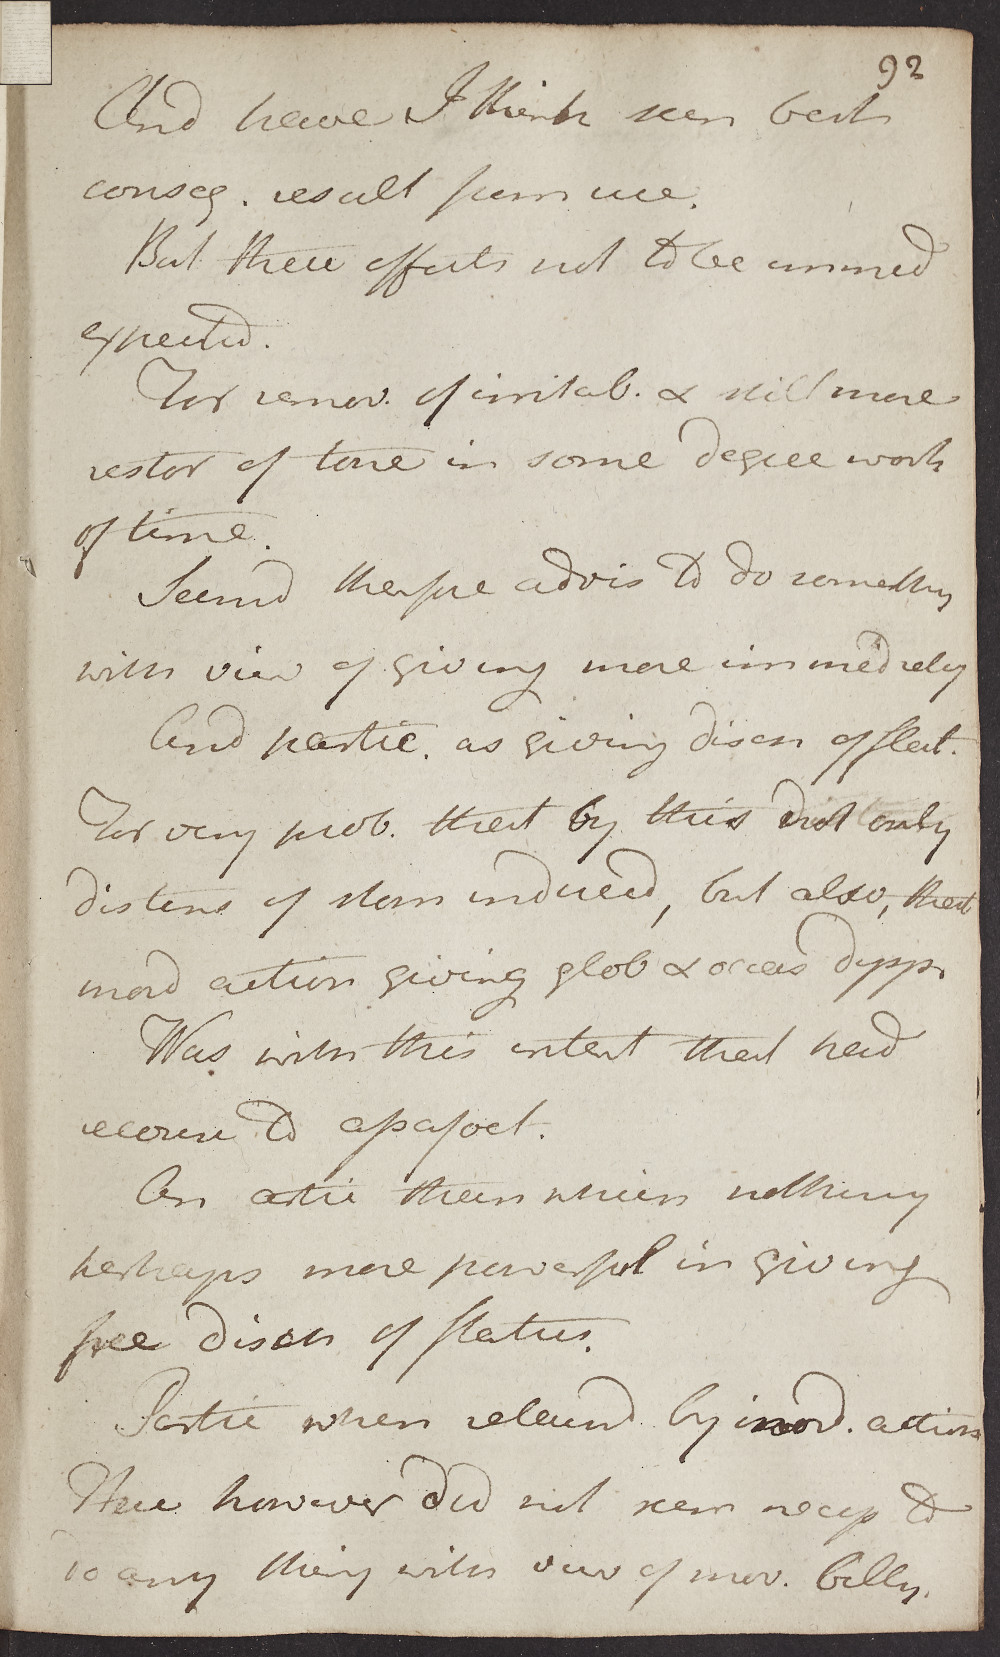 92
And have I think seen best
conseq. result from use.
But these effects not to be immed
expected.
For remov. of irritab. & still more
restor of tone in some degree work
of time.
Seemd therfore advis to do somethg
with view of giving more immed rely
And partic. as giving disch of flat.
For very prob. that by this not only
distens of stom induced, but also, that
mord action giving glob & occas dypp.
Was with this intent that had
recourse to assafoet.
An artic than which nothing
perhaps more powerful in giving
free disch of flatus.
Partic when retaind by inord. action
Here however did not seem necess to
do any thing with view of mov. belly.